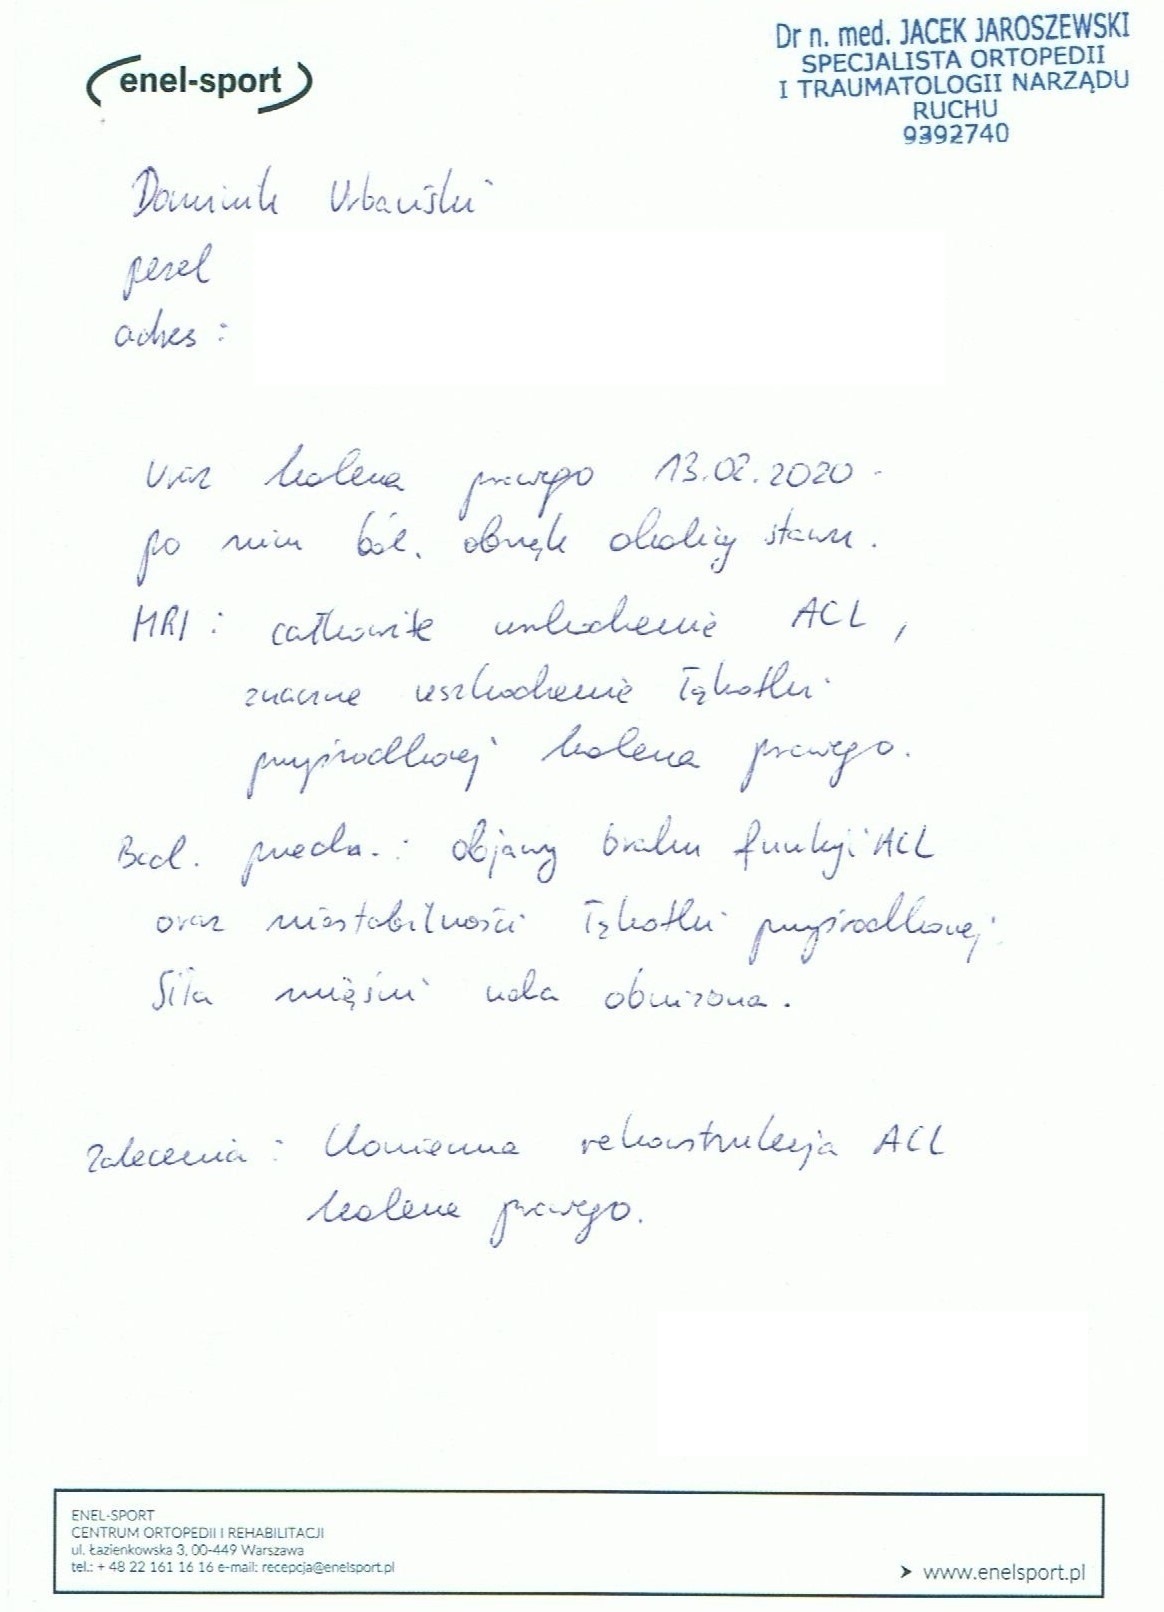 enel-sport
Dr n. med. JACEK JAROSZEWSKI
SPECJALISTA ORTOPEDII
I TRAUMATOLOGII NARZĄDU
RUCHU
9392740
Dominik Urbański
pesel
adres :
Uraz kolana prawego 13.02.2020 -
po nim ból, obrzęk okolicy stawu.
MRI : całkowite uszkodzenie ACL,
znaczne uszkodzenie łąkotki
przyśrodkowej kolana prawego.
Bad. przedm. : objawy braku funkcji ACL
oraz niestabilności łąkotki przyśrodkowej.
Siła mięśni uda obniżona.
Zalecenia : Konieczna rekonstrukcja ACL
kolana prawego.
ENEL-SPORT
CENTRUM ORTOPEDII I REHABILITACJI
ul. Łazienkowska 3, 00-449 Warszawa
tel.: + 48 22 161 16 16 e-mail: recepcja@enelsport.pl
www.enelsport.pl